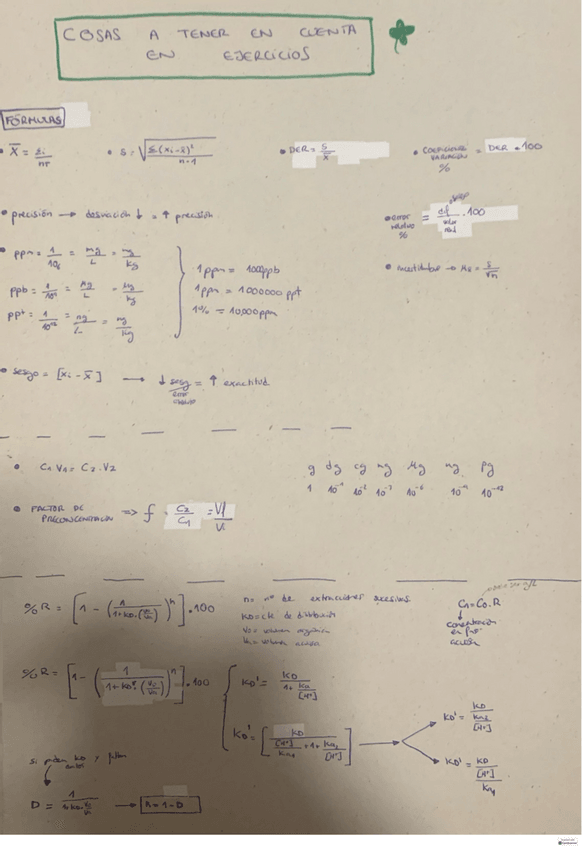 COSAS A TENER EN CUENTA
EN EJERCICIOS
FÓRMULAS
• X̄ = Σi / n
• S = √(Σ(xi - x̄)² / n-1)
• DER = S / X̄
• COEFICIENTE VARIACIÓN % = DER · 100
• precisión → desviación ↓ = ↑ precisión
• error relativo % = dif / valor real · 100
• ppm = 1/10⁶ = mg/L = mg/kg
ppb = 1/10⁹ = μg/L = μg/kg
ppt = 1/10¹² = ng/L
1 ppm = 1000 ppb
1 ppm = 1000000 ppt
1% = 10,000 ppm
• incertidumbre → μx = S/√n
• sesgo = [xi - x̄] → ↓ sesgo = ↑ exactitud
error
• C1 V1 = C2 · V2
g dg cg mg μg ng pg
1 10⁻¹ 10⁻² 10⁻³ 10⁻⁶
• FACTOR DE PRECONCENTRACIÓN => f = C2/C1 = Vf/Vi
%R = [1 - (1 / 1+KD·(Vo/Va))ⁿ] · 100
n = nº de extracciones sucesivas
KD = cte de distribución
Vo = volumen orgánico
Va = volumen acuoso
C1 = C0 · R
concentración
%R = [1 - (1 / 1+KD'·(Vo/Va))ⁿ] · 100
KD' = KD / 1+ Ka/[H⁺]
KD' = [KD / [H⁺]/Ka1 + 1 + Ka2/[H⁺]]
KD' = KD / Ka2/[H⁺]
KD' = KD / [H⁺]/Ka1
si piden KD y
D = 1 / 1+KD·Vo/Va → R = 1 - D